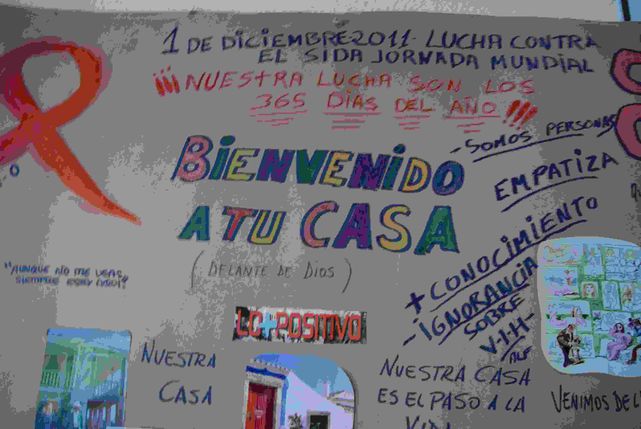 1 DE DICIEMBRE 2011 - LUCHA CONTRA
EL SIDA JORNADA MUNDIAL
¡¡¡NUESTRA LUCHA SON LOS
365 DÍAS DEL AÑO!!!
- SOMOS PERSONAS
BIENVENIDO
A TU CASA
(DELANTE DE DIOS)
EMPATIZA
+ CONOCIMIENTO
- IGNORANCIA
SOBRE
V-I-H-
"AUNQUE NO ME VEAS,
SIEMPRE ESTOY AQUÍ"
LO+POSITIVO
NUESTRA
CASA
NUESTRA CASA
ES EL PASO A LA
VIDA
VENIMOS DE L